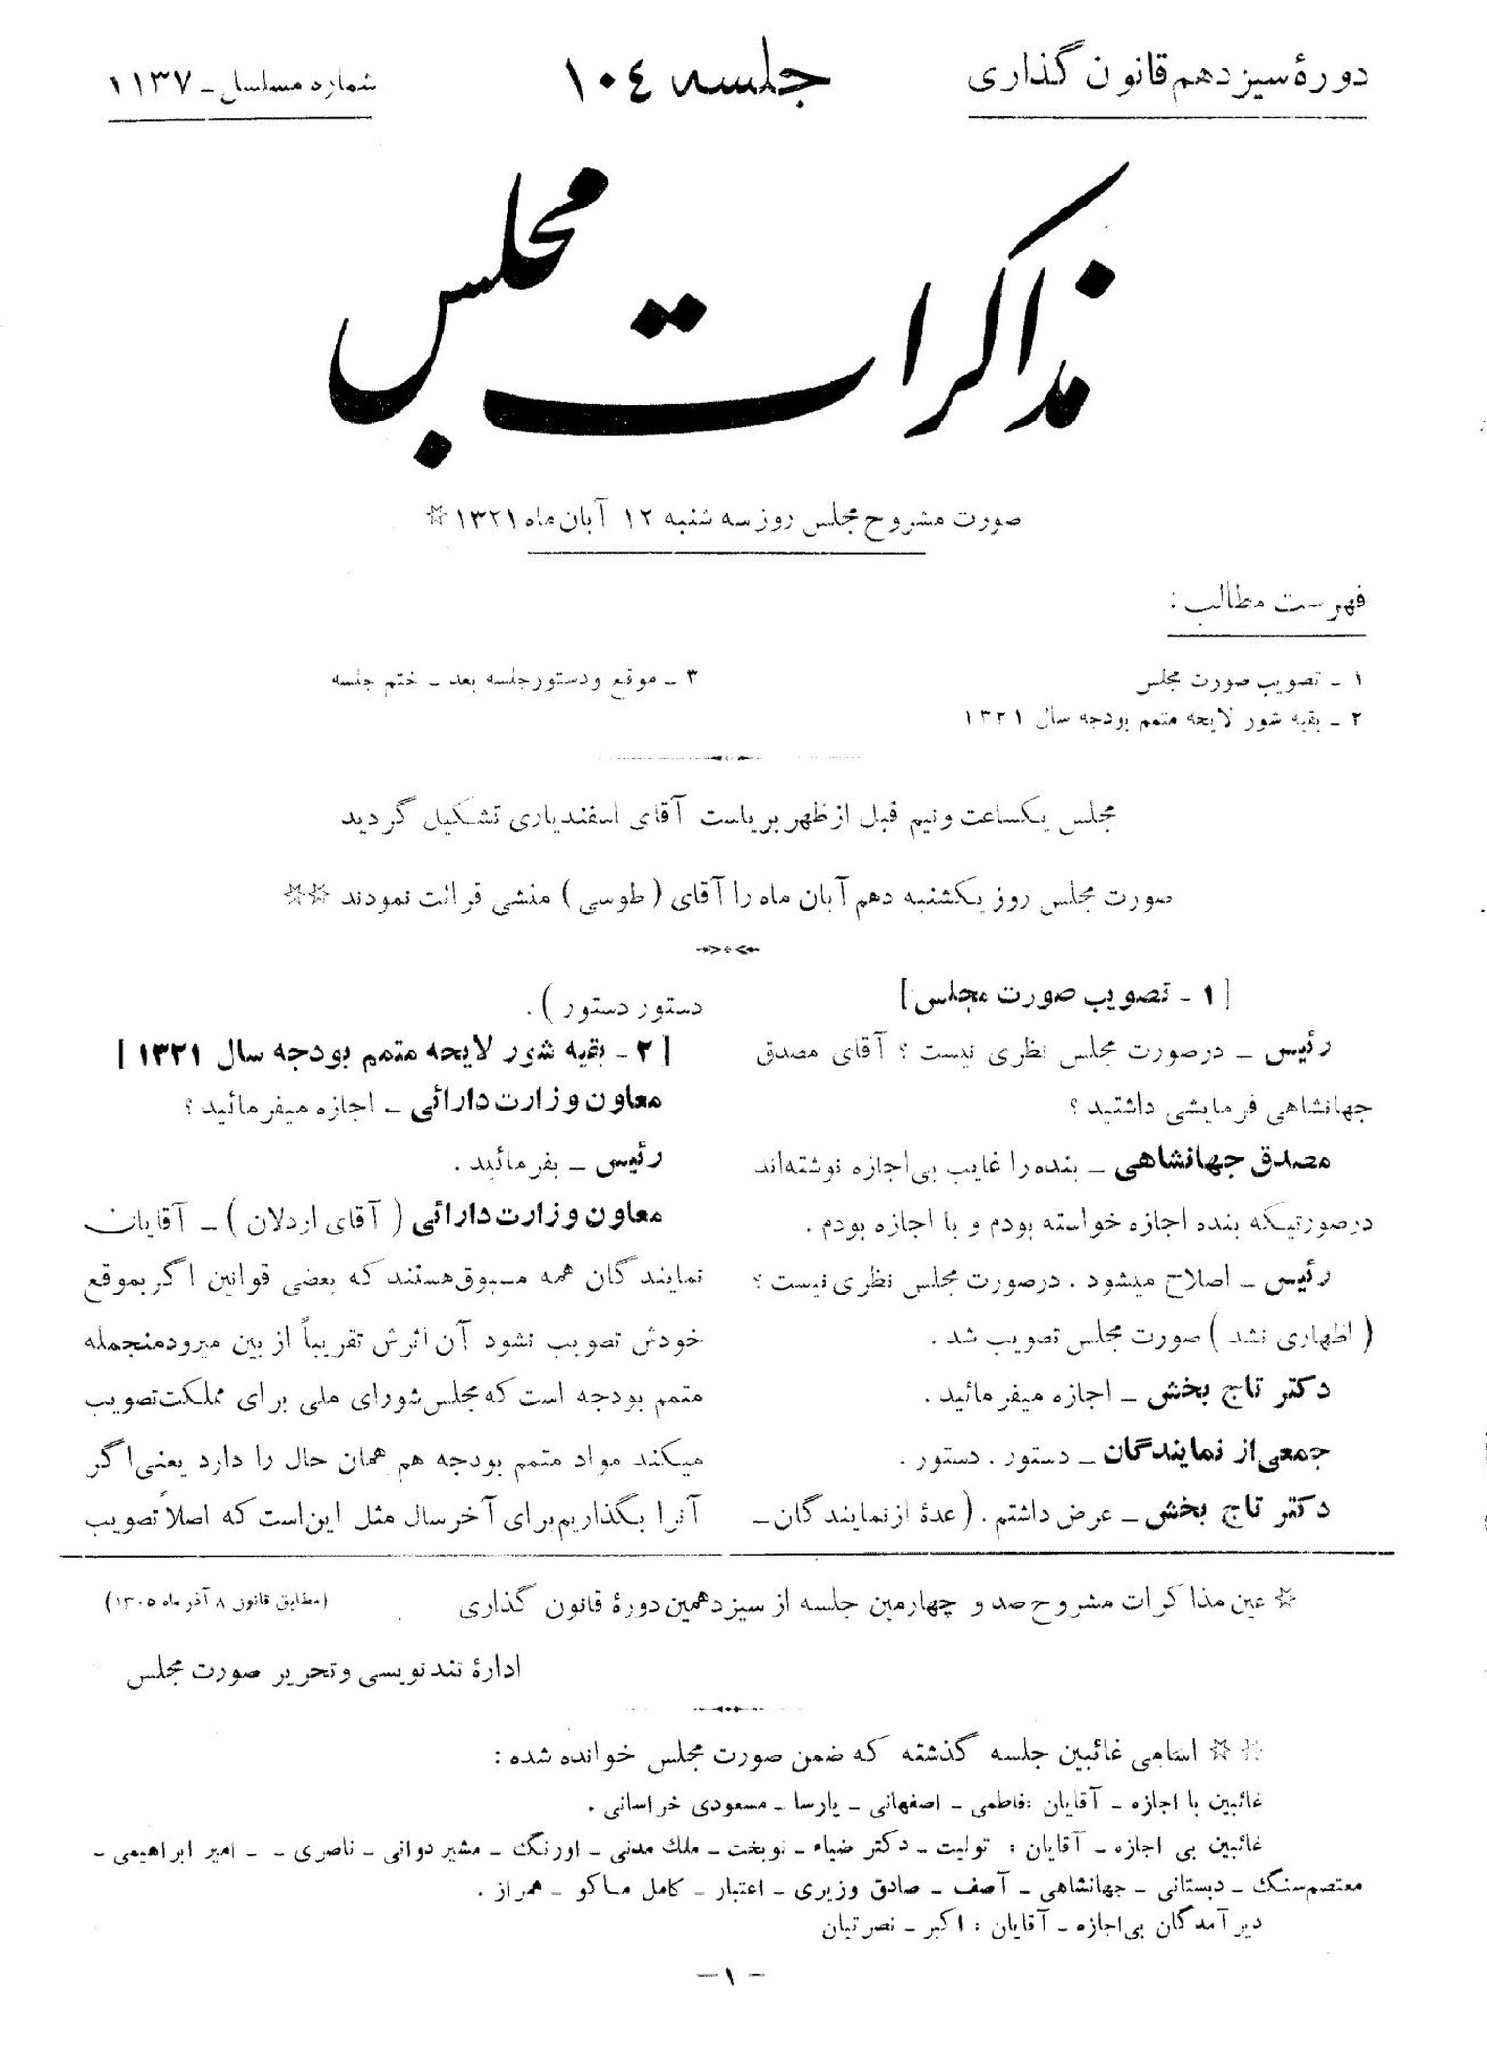 دورهٔ سیزدهم قانون گذاری
جلسه ۱۰۴
شماره مسلسل ـ ۱۱۳۷
مذاکرات مجلس
صورت مشروح مجلس روز سه شنبه ۱۲ آبان ماه ۱۳۲۱ ☆
فهرست مطالب :
۱ ـ تصویب صورت مجلس
۲ ـ بقیه شور لایحه متمم بودجه سال ۱۳۲۱
۳ ـ موقع و دستور جلسه بعد ـ ختم جلسه
مجلس یکساعت و نیم قبل از ظهر بریاست آقای اسفندیاری تشکیل گردید
صورت مجلس روز یکشنبه دهم آبان ماه را آقای ( طوسی ) منشی قرائت نمودند ☆☆
[ ۱ ـ تصویب صورت مجلس ]
رئیس ـ در صورت مجلس نظری نیست ؟ آقای مصدق
جهانشاهی فرمایشی داشتید ؟
مصدق جهانشاهی ـ بنده را غایب بی‌اجازه نوشته‌اند
درصورتیکه بنده اجازه خواسته بودم و با اجازه بودم .
رئیس ـ اصلاح میشود . درصورت مجلس نظری نیست ؟
( اظهاری نشد ) صورت مجلس تصویب شد .
دکتر تاج بخش ـ اجازه میفرمائید .
جمعی از نمایندگان ـ دستور . دستور .
دکتر تاج بخش ـ عرض داشتم . ( عدهٔ از نمایندگان ـ
دستور دستور ) .
[ ۲ ـ بقیه شور لایحه متمم بودجه سال ۱۳۲۱ ]
معاون وزارت دارائی ـ اجازه میفرمائید ؟
رئیس ـ بفرمائید .
معاون وزارت دارائی ( آقای اردلان ) ـ آقایان
نمایندگان همه مسبوق هستند که بعضی قوانین اگر بموقع
خودش تصویب نشود آن اثرش تقریباً از بین میرود منجمله
متمم بودجه است که مجلس شورای ملی برای مملکت تصویب
میکند مواد متمم بودجه هم همان حال را دارد یعنی اگر
آنرا بگذاریم برای آخر سال مثل این است که اصلاً تصویب
☆ عین مذاکرات مشروح صد و چهارمین جلسه از سیزدهمین دورهٔ قانون گذاری
(مطابق قانون ۸ آذر ماه ۱۳۰۵)
ادارهٔ تند نویسی و تحریر صورت مجلس
☆☆ اسامی غائبین جلسه گذشته که ضمن صورت مجلس خوانده شده :
غائبین با اجازه ـ آقایان : فاطمی ـ اصفهانی ـ پارسا ـ مسعودی خراسانی .
غائبین بی اجازه ـ آقایان : تولیت ـ دکتر ضیاء ـ نوبخت ـ ملک مدنی ـ اورنگ ـ مشیر دوانی ـ ناصری ـ ـ امیر ابراهیمی ـ
معتصم سنگ ـ دبستانی ـ جهانشاهی ـ آصف ـ صادق وزیری ـ اعتبار ـ کامل ماکو ـ همراز .
دیر آمدگان بی‌اجازه ـ آقایان : اکبر ـ نصرتیان
ـ ۱ ـ